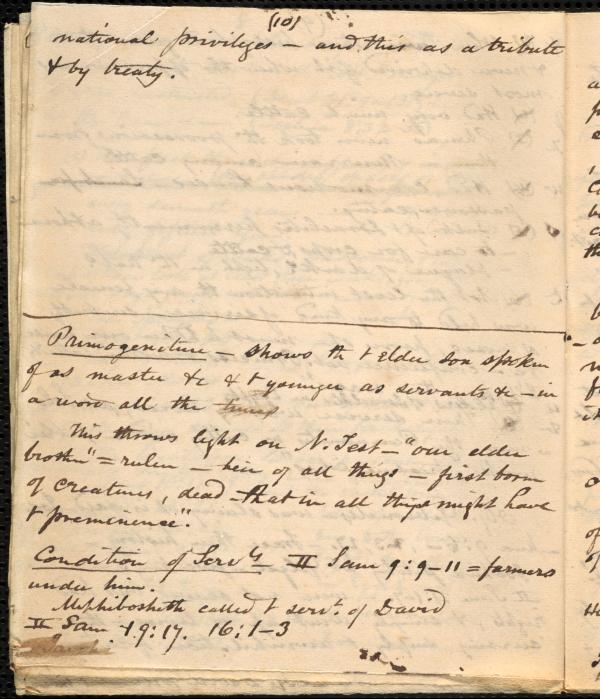 (10)
national privileges – and this as a tribute
& by treaty.
Primogeniture – shows th t elder son spoken
of as master &c & t younger as servants &c – in
a word all the
This throws light on N. Test – "our elder
brother" = ruler – heir of all things – first born
of creatures, dead – "that in all things might have
t preminence".
Condition of Servts II Sam 9:9–11 = farmers
under him.
Mephibosheth called t servt. of David
II Sam 19:17. 16:1–3